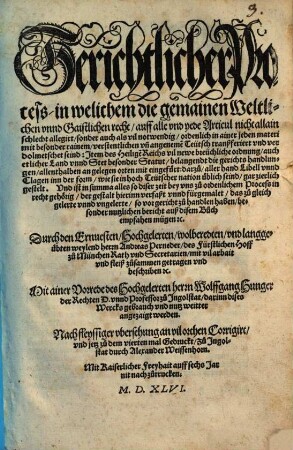 3.
Gerichtlicher Pro
cess / in welichem die gemainen Weltli-
chen vnnd Gaistlichen recht / auff alle vnd yede Articul nicht allain
schlecht allegirt / sonder auch als vil notwendig / ordenlich in ainer jeden materi
mit besonder rainem / verstentlichen vñ angenemē Teutsch transferiert vnd ver
dolmetschet seind: Item des Heiligē Reichs vil newe berichtliche ordnung / auch
etlicher Land vnnd Stett besondere Statut / belangendt die gerichts handlun-
gen / allenthalben an gelegen orten mit eingefürt / darzů / aller hand Libell vnd
Clagen inn der form / wie sie in hoch Teutscher nation üblich seind / gar zierlich
gestelt. Vnd ist in summa alles so diser zeit bey vns zů ordenlichem Process in
recht gehörig / der gestalt hierinn verfaßt vnnd fürgemalet / das zů gleich
gelerte vnnd vngelerte / so vor gericht zů handlen haben / be-
sonder nutzlichen bericht auß disem Bůch
empfahen mügen &c.
Durch den Ernuesten / Hochgelerten / wolberedten / vnd langge-
übten weylend herrn Andreas Perneder / des Fürstlichen Hoff
zů München Rath vnd Secretarien / mit vil arbait
vnd fleiß zůsammen getragen vnd
beschriben &c.
Mit ainer Vorrede des Hochgelerten herrn Wolffgang Hunger
der Rechten D. vnnd Professor zů Ingolstat / darinn dises
Wercks gebrauch vnd nutz weitter
angezaigt werden.
Nach fleyssiger vbersehung an vil orthen Corrigirt /
vnd jetz zů dem viertem mal Gedruckt / zů Ingol-
stat durch Alexander Weissenhorn.
Mit Kaiserlicher Freyhait auff sechs Jar
nit nachzůtrucken.
M. D. XLVI.